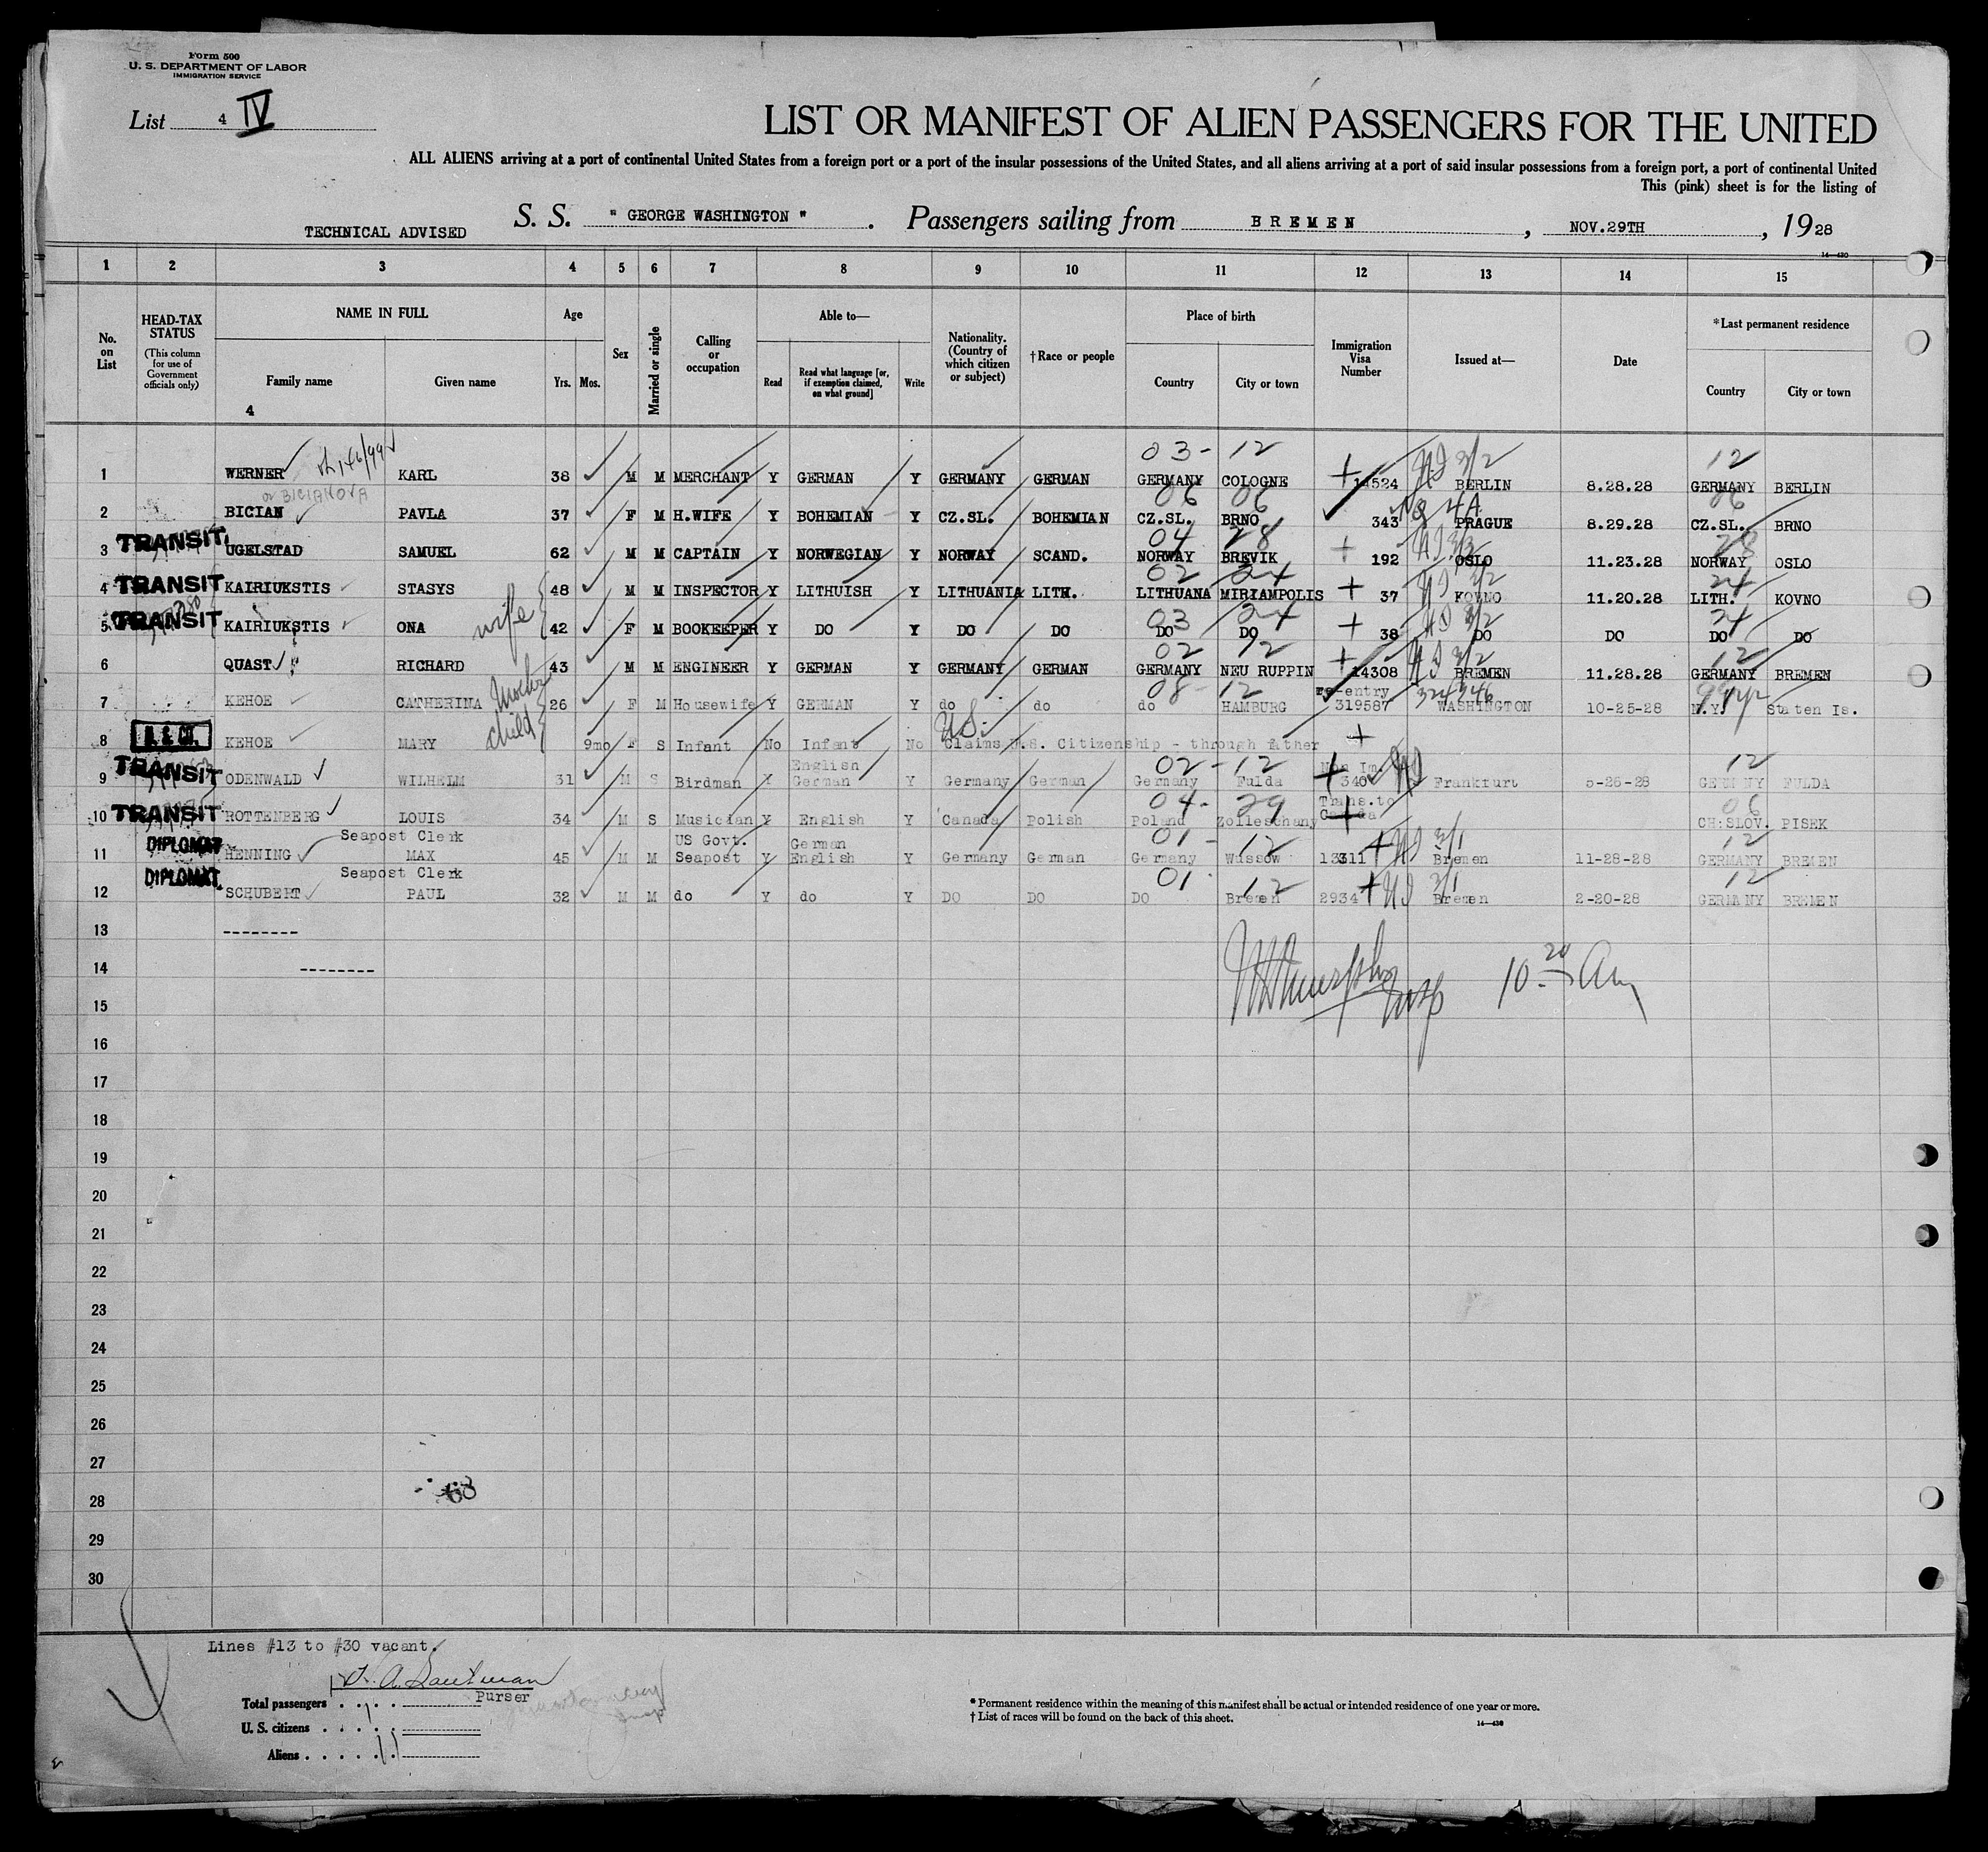 Form 500
U. S. DEPARTMENT OF LABOR
IMMIGRATION SERVICE
List 4 IV
LIST OR MANIFEST OF ALIEN PASSENGERS FOR THE UNITED
ALL ALIENS arriving at a port of continental United States from a foreign port or a port of the insular possessions of the United States, and all aliens arriving at a port of said insular possessions from a foreign port, a port of continental United
This (pink) sheet is for the listing of
S. S. " GEORGE WASHINGTON " . Passengers sailing from BREMEN , NOV.29TH , 1928
TECHNICAL ADVISED
14—430
1 2 3 4 5 6 7 8 9 10 11 12 13 14 15
No. on List
HEAD-TAX STATUS (This column for use of Government officials only)
NAME IN FULL
Family name
Given name
4
Age
Yrs. Mos.
Sex
Married or single
Calling or occupation
Able to—
Read
Read what language [or, if exemption claimed, on what ground]
Write
Nationality. (Country of which citizen or subject)
† Race or people
Place of birth
Country
City or town
Immigration Visa Number
Issued at—
Date
*Last permanent residence
Country
City or town
03 - 12 12
1 WERNER KARL 38 M M MERCHANT Y GERMAN Y GERMANY GERMAN GERMANY COLOGNE 14524 BERLIN 8.28.28 GERMANY BERLIN
or BICIANOVA 06 06 06
2 BICIAN PAVLA 37 F M H.WIFE Y BOHEMIAN Y CZ.SL. BOHEMIAN CZ.SL. BRNO 343 PRAGUE 8.29.28 CZ.SL. BRNO
04 28 28
3 TRANSIT UGELSTAD SAMUEL 62 M M CAPTAIN Y NORWEGIAN Y NORWAY SCAND. NORWAY BREVIK 192 OSLO 11.23.28 NORWAY OSLO
02 24 24
4 TRANSIT KAIRIUKSTIS STASYS 48 M M INSPECTOR Y LITHUISH Y LITHUANIA LITH. LITHUANA MIRIAMPOLIS 37 KOVNO 11.20.28 LITH. KOVNO
03 24 24
5 TRANSIT KAIRIUKSTIS ONA wife 42 F M BOOKEEPER Y DO Y DO DO DO DO 38 DO DO DO DO
02 12 12
6 QUAST RICHARD 43 M M ENGINEER Y GERMAN Y GERMANY GERMAN GERMANY NEU RUPPIN 14308 BREMEN 11.28.28 GERMANY BREMEN
08 - 12 re-entry
7 KEHOE CATHERINA Mother 26 F M Housewife Y GERMAN Y do do do HAMBURG 319587 WASHINGTON 10-25-28 N.Y. Staten Is.
U.S.
8 KEHOE MARY child 9mo F S Infant No Infant No Claims U.S. Citizenship - through father
English 02 - 12 Non Im. 12
9 TRANSIT ODENWALD WILHELM 31 M S Birdman Y German Y Germany German Germany Fulda 340 Frankfurt 5-26-28 GERMANY FULDA
04 - 29 Trans.to Canada 06
10 TRANSIT ROTTENBERG LOUIS 34 M S Musician Y English Y Canada Polish Poland Zolleschany CH:SLOV. PISEK
Seapost Clerk US Govt. German 01 - 12 12
11 DIPLOMAT HENNING MAX 45 M M Seapost Y English Y Germany German Germany Wussow 13311 Bremen 11-28-28 GERMANY BREMEN
Seapost Clerk 01 12 12
12 DIPLOMAT. SCHUBERT PAUL 32 M M do Y do Y DO DO DO Bremen 2934 Bremen 2-20-28 GERMANY BREMEN
13 --------
14 --------
10 20 Am
15
16
17
18
19
20
21
22
23
24
25
26
27
28 68
29
30
Lines #13 to #30 vacant.
Purser
Total passengers
U. S. citizens 1
Aliens 11
* Permanent residence within the meaning of this manifest shall be actual or intended residence of one year or more.
† List of races will be found on the back of this sheet.
14—430